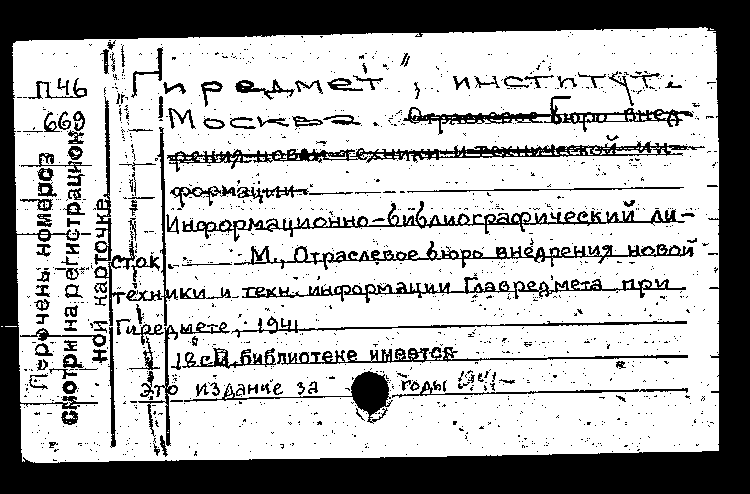 П46
669
Перечень номеров
смотри на регистрацион-
ной карточке.
"Гиредмет", институт.
Москва. Отраслевое бюро внед-
рения новой техники и технической ин-
формации
Информационно-библиографический ли-
сток. М., Отраслевое бюро внедрения новой
техники и техн. информации Главредмета при
Гиредмете, 1941
В библиотеке имеется
это издание за годы 1941-